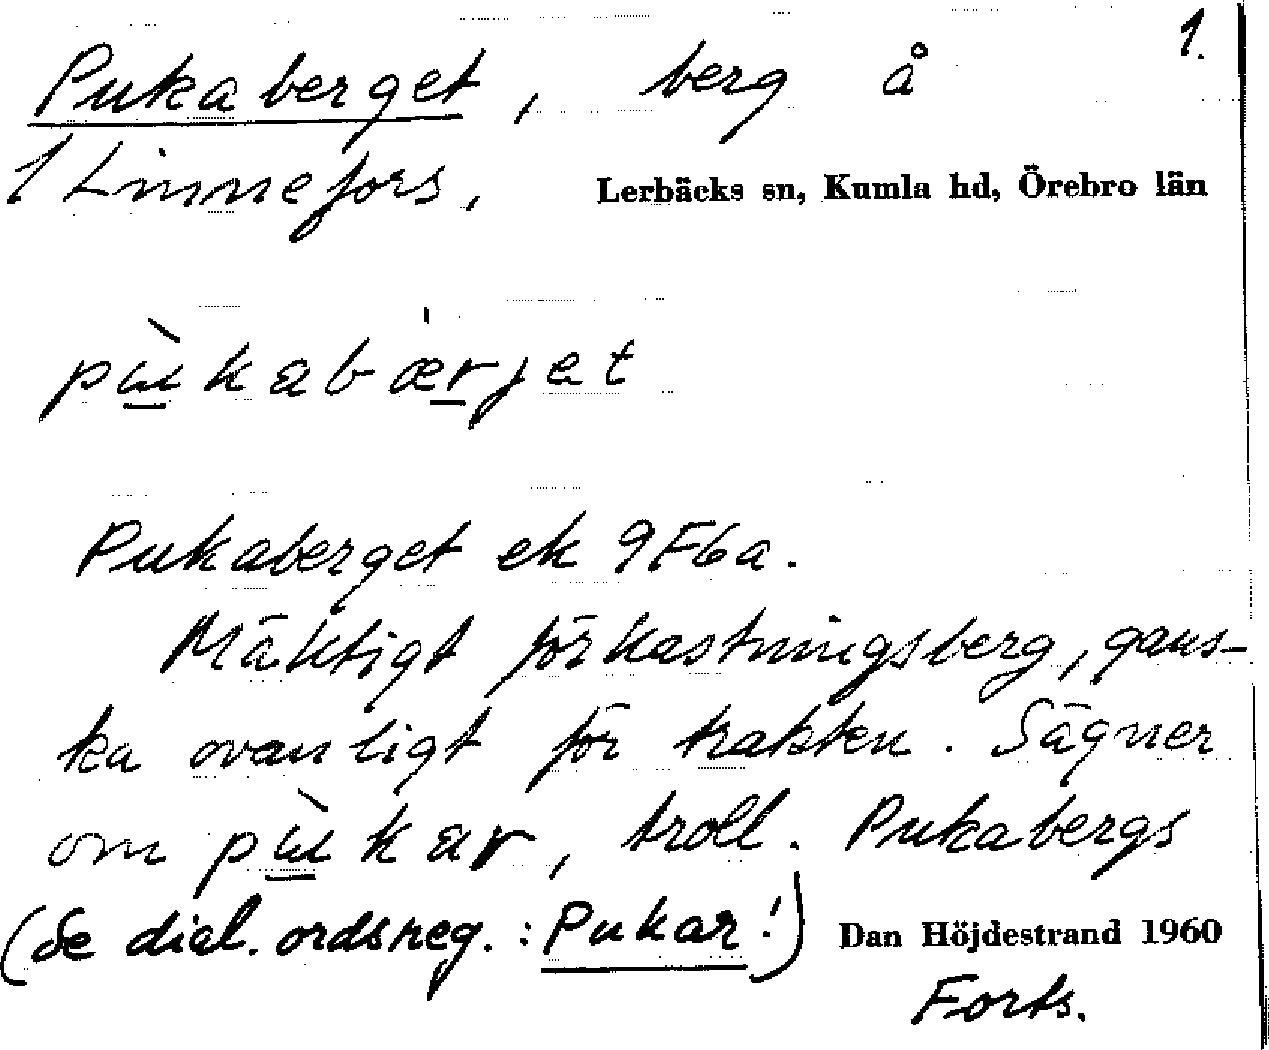 1.
Pukaberget, berg å
1 Linnefors, Lerbäcks sn, Kumla hd, Örebro län
pɯ̀kabærjet
Pukaberget ek 9F6a.
Mäktigt förkastningsberg, gans-
ka ovanligt för trakten. Sägner
om pɯ̀kar, troll. Pukabergs
(Se dial. ordsreg.: Pukar!) Dan Höjdestrand 1960
Forts.